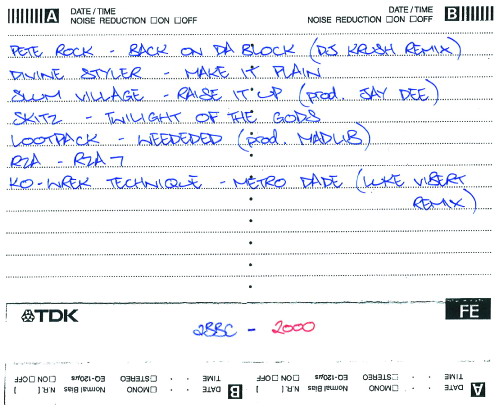 A DATE / TIME DATE / TIME B
NOISE REDUCTION □ON □OFF NOISE REDUCTION □ON □OFF
PETE ROCK - BACK ON DA BLOCK (DJ KRUSH REMIX)
DIVINE STYLER - MAKE IT PLAIN
SLUM VILLAGE - RAISE IT UP (prod. JAY DEE)
SKITZ - TWILIGHT OF THE GODS
LOOTPACK - WEEDEDED (prod. MADLIB)
RZA - RZA 7
KO-WREK TECHNIQUE - METRO DADE (LUKE VIBERT
REMIX)
TDK FE
2BBC - 2000
A DATE TIME □ON □OFF N.R. [ ] Normal Bias EQ-120μs □MONO □STEREO
B DATE TIME □ON □OFF N.R. [ ] Normal Bias EQ-120μs □MONO □STEREO